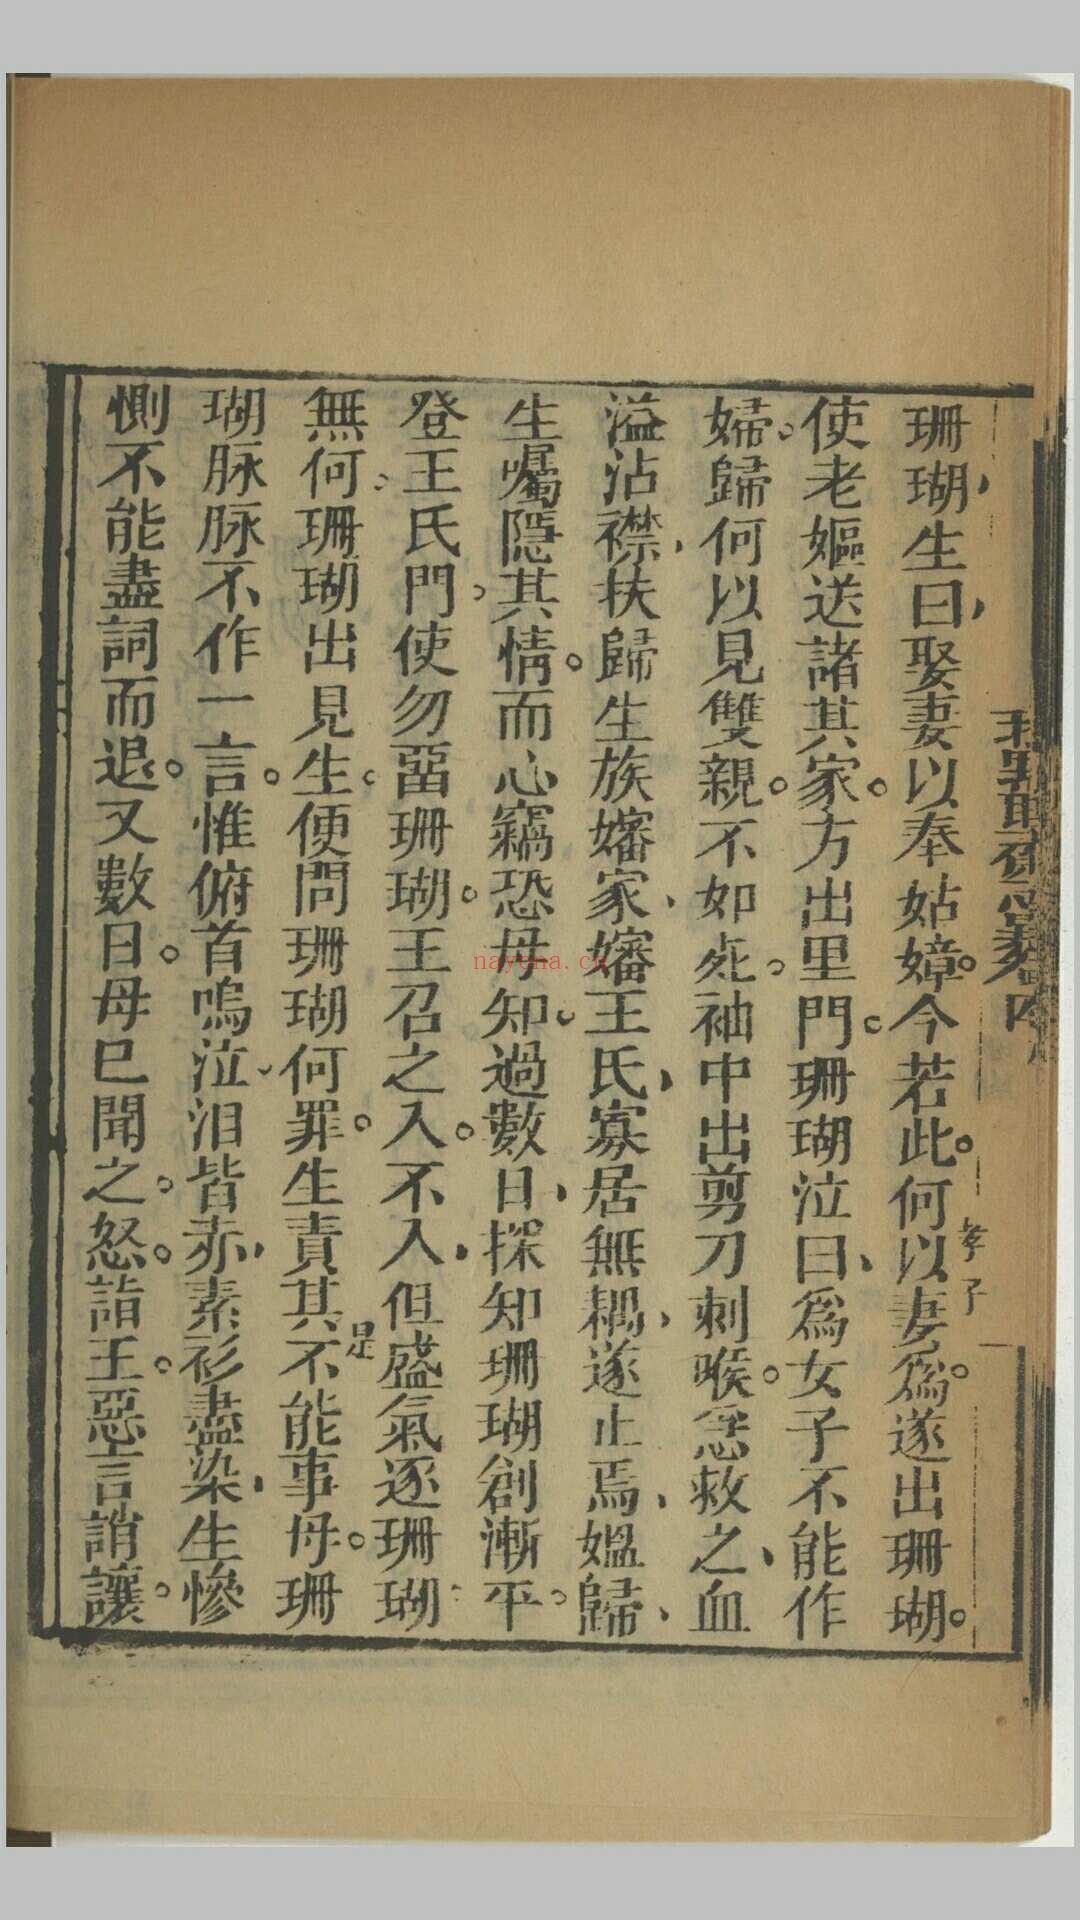 珊瑚生曰娶妻以奉姑嫜今若此何以妻爲遂出珊瑚
使老嫗送諸其家方出里門珊瑚泣曰爲女子不能作
婦歸何以見雙親不如死袖中出剪刀刺喉急救之血
溢沾襟扶歸生族嬸家嬸王氏寡居無耦遂止焉媼歸
生囑隱其情而心竊恐母知過數日探知珊瑚創漸平
登王氏門使勿畱珊瑚王召之入不入但盛氣逐珊瑚
無何珊瑚出見生便問珊瑚何罪生責其不能事母珊
瑚脉脉不作一言惟俯首嗚泣泪皆赤素衫盡染生慘
惻不能盡詞而退又數日母已聞之怒詣王惡言誚讓
孝子
是
nayona.cn